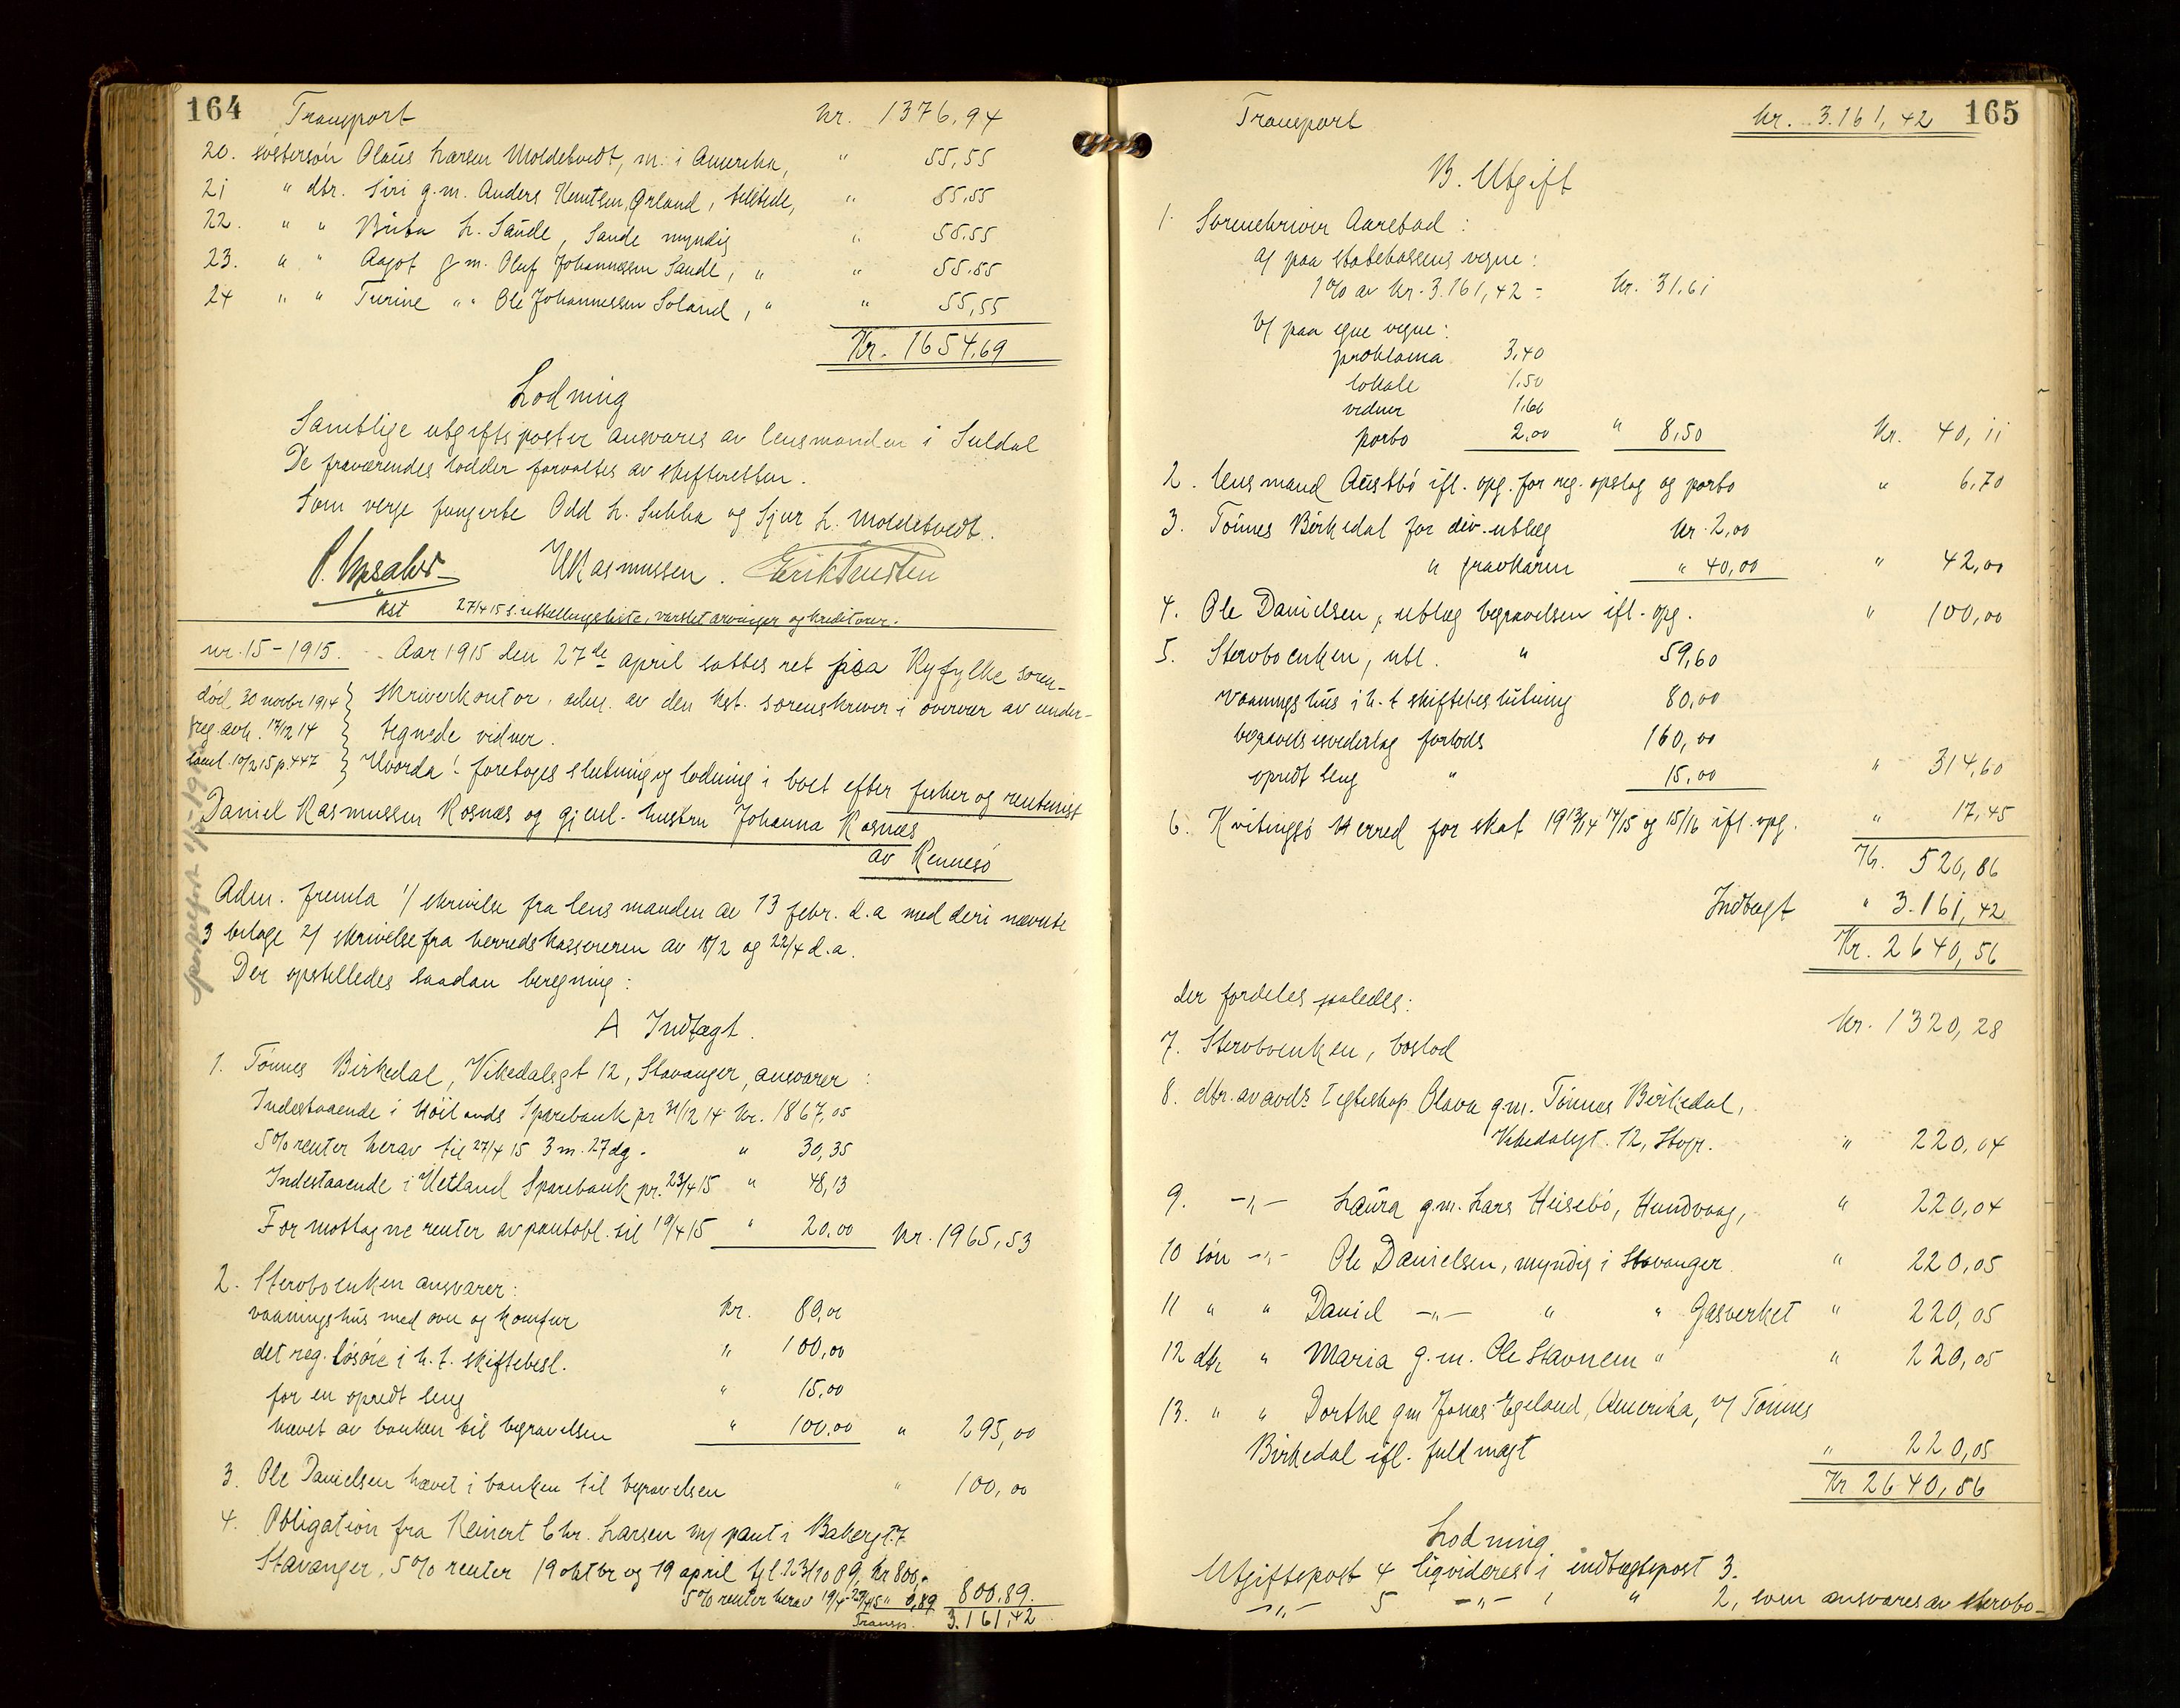 164 Transport kr. 1376,94
20. søstersøn Olaus Larsen Moldetvedt, m. i Amerika, " 55,55
21 " dtr. Siri g.m. Anders Knutsen, Ørland, tilstede, " 55,55
22. " " Brita L. Saude, Sande myndig " 55,55
23. " " Aagot g m. Oluf Johannessen Saude, " " 55,55
24 " " Turine " " Ole Johannessen Soland, " " 55,55
Kr. 1654,69
Lodning
Samtlige utgiftsposter ansvares av lensmanden i Suldal
De fraværendes lodder forvaltes av skifteretten.
Som verge fungerte Odd L. Sukka og Sjur L. Moldetvedt.
Rasmussen. Erik Knudsen
kst 27/4 15 s. utstillingsliste, varslet arvinger og kreditorer.
nr. 15-1915. Aar 1915 den 27de april sattes ret paa Ryfylke soren-
død 30 novbr 1914 skriverkontor, adm. av den kst. sorenskriver i overvær av under-
reg. avh. 17/12 14 tegnede vidner.
10/2 15 p. 447 Hvorda! foretoges slutning og lodning i boet efter fisker og rentenist
Daniel Rasmussen Rosnæs og gjenl. hustru Johanna Rosnæs
av Rennesø
Adm. fremla 1/ skrivelse fra lensmanden av 13 febr. d.a med deri nævnte
3 bilage 2/ skrivelse fra herredskassereren av 18/2 og 22/4 d.a.
Der opstilledes saadan beregning:
A Indtægt.
1. Tønnes Birkedal, Vikedalsgt 12, Stavanger, ansvarer:
Indestaaende i Høilands Sparebank pr 31/12 14 kr. 1867,05
5% renter herav til 27/4 15 3 m. 27 dg. " 30,35
Indestaaende i Hetland Sparebank pr. 23/4 15 " 48,13
For mottagne renter av pantobl. til 19/4 15 " 20,00 kr. 1965,53
2. Stervboenken ansvarer:
vaaningshus med ovn og komfur kr. 80,00
det reg. løsøre i h. t. skiftebesl. " 100,00
for en opredt seng " 15,00
hævet av banken til begravelsen " 100,00 " 295,00
3. Ole Danielsen hævet i banken til begravelsen " 100,00
4. Obligation fra Reinert Chr. Larsen m/ pant i Bakergt. 7
Stavanger, 5% renter 19 oktbr og 19 april tgl. 23/10 09, kr 800,-
5% renter herav 19/4-27/4 15 " 0,89 800,89.
Transp. 3.161,42
Transport kr. 3.161,42 165
B. Utgift
1. Sorenskriver Aarstad:
a/ paa statskassens vegne:
1% av kr. 3.161,42 = kr. 31,61
b/ paa egne vegne:
proklama 3,40
lokale 1,50
vidner 1,60
porto 2,00 " 8,50 kr. 40,11
2. Lensmand Austbø ifl. opg. for reg. opslag og porto " 6,70
3. Tønnes Birkedal for div. utlæg kr. 2,00
" gravkarm " 40,00 " 42,00
4. Ole Danielsen, utlæg begravelsen ifl. opg. " 100,00
5. Stervboenken, utl. " 59,60
vaaningshus i h. t skiftebeslutning 80,00
begravelsesvederlag forlods 160,00
opredt seng " 15,00 " 314,60
6. Kvitingsø herred for skat 1913/14 14/15 og 15/16 ifl. opg. " 17,45
Kr. 520,86
Indtægt " 3.161,42
Kr. 2640,56
der fordeles saaledes:
7. Stervboenken, boslod kr. 1320,28
8. dtr. av avds egteskap Olava g.m. Tønnes Birkedal,
Vikedalsgt. 12, Stvgr. " 220,04
9. -"- Laura g.m. Lars Heisebø, Hundvaag, " 220,04
10 søn -"- Ole Danielsen, myndig i Stavanger " 220,05
11 " " Daniel -"- " " Gasverket " 220,05
12 dtr " Maria g. m. Ole Stavnem " " 220,05
13. " " Dorthe gm Jonas Egeland, Amerika, v/ Tønnes
Birkedal ifl. fuldmagt " 220,05
Kr 2640,56
Lodning
Utgiftspost 4 likvideres i indtægtspost 3.
-"- 5 -"- " 2, som ansvares av stervbo-